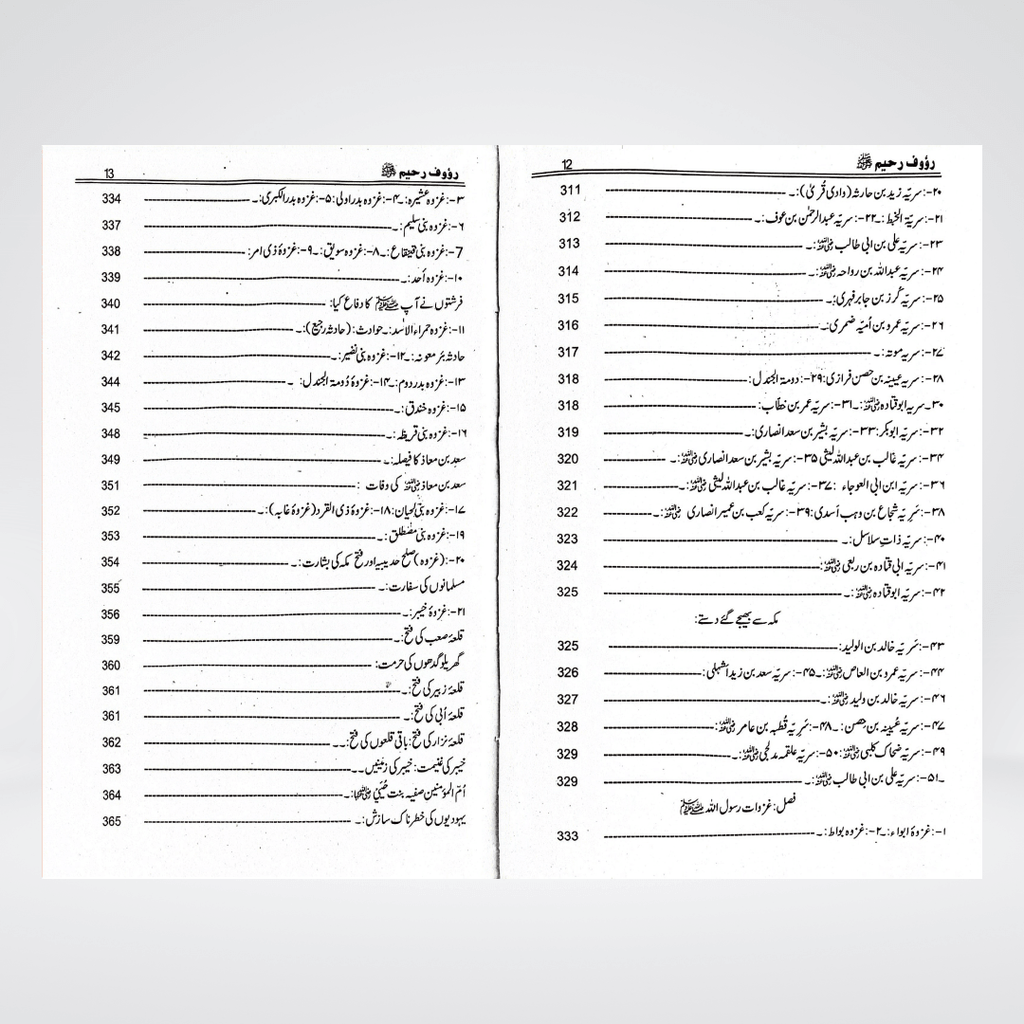 رؤوف رحیم ﷺ 12
۲۰-: سریّہ زید بن حارثہ (وادی قُریٰ):۔ 311
۲۱-: سریّۃ الخبط:۔ ۲۲-: سریّہ عبدالرحمٰن بن عوف:۔ 312
۲۳-: سریّہ علی بن ابی طالب رضی اللہ عنہ:۔ 313
۲۴-: سریّہ عبداللہ بن رواحہ رضی اللہ عنہ:۔ 314
۲۵-: سریّہ کُرز بن جابر فہری:۔ 315
۲۶-: سریّہ عمرو بن اُمیّہ ضمری:۔ 316
۲۷-: سریہ موتہ:۔ 317
۲۸-: سریہ عیینہ بن حصن فرازی: ۲۹-: دومۃ الجندل: 318
۳۰۔ سریہ ابوقتادہ رضی اللہ عنہ:۔ ۳۱-: سریہ عمر بن خطّاب: 318
۳۲-: سریّہ ابوبکر: ۳۳-: سریّہ بشیر بن سعد انصاری:۔ 319
۳۴-: سریّہ غالب بن عبداللہ لیثی ۳۵-: سریّہ بشیر بن سعد انصاری رضی اللہ عنہ:۔ 320
۳۶-: سریّہ ابن ابی العوجاء : ۳۷-: سریّہ غالب بن عبداللہ لیثی رضی اللہ عنہ:۔ 321
۳۸-: سَرِیّہ شجاع بن وہب اَسدی: ۳۹-: سریّہ کعب بن عمیر انصاری رضی اللہ عنہ:۔ 322
۴۰-: سریّہ ذاتِ سلاسل:۔ 323
۴۱-: سریّہ ابی قتادہ بن ربعی رضی اللہ عنہ: 324
۴۲-: سریّہ ابوقتادہ رضی اللہ عنہ:۔ 325
مکہ سے بھیجے گئے دستے:
۴۳-: سَریّہ خالد بن الولید: 325
۴۴-: سریّہ عمرو بن العاص رضی اللہ عنہ:۔ ۴۵-: سریّہ سعد بن زید اشہلی: 326
۴۶-: سریّہ خالد بن ولید رضی اللہ عنہ:۔ 327
۴۷-: سریّہ عُیینہ بن حِصن:۔ ۴۸-: سَرِیّہ قُطبہ بن عامر رضی اللہ عنہ: 328
۴۹-: سریّہ ضحاک کلبی رضی اللہ عنہ: ۵۰-: سریّہ علقمہ مدلجی رضی اللہ عنہ:۔ 329
۵۱-: سریّہ علی بن ابی طالب رضی اللہ عنہ:۔ 329
فصل: غزوات رسول اللہ ﷺ
۱-: غزوۂ ابواء:۔ ۲-: غزوہ بواط:۔ 333
رؤوف رحیم ﷺ 13
۳-: غزوہ عشیرہ:۔ ۴-: غزوہ بدر اولی: ۵-: غزوہ بدر الکبری:۔ 334
۶-: غزوہ بنی سلیم:۔ 337
7-: غزوہ بنی قینقاع:۔ ۸-: غزوہ سویق:۔ ۹-: غزوۂ ذی امر: 338
۱۰-: غزوہ اُحد:۔ 339
فرشتوں نے آپ ﷺ کا دفاع کیا: 340
۱۱-: غزوہ حمراء الاسد:۔ حوادث: (حادثہ رجیع):۔ 341
حادثہ بئر معونہ:۔ ۱۲-: غزوہ بنی نضیر:۔ 342
۱۳-: غزوہ بدر دوم:۔ ۱۴-: غزوۂ دُومۃ الجندل:۔ 344
۱۵-: غزوہ خندق:۔ 345
۱۶-: غزوہ بنی قریظہ:۔ 348
سعد بن معاذ کا فیصلہ:۔ 349
سعد بن معاذ رضی اللہ عنہ کی وفات : 351
۱۷-: غزوہ بنی لحیان: ۱۸-: غزوۂ ذی القرد (غزوۂ غابہ):۔ 352
۱۹-: غزوہ بنی مصطلق:۔ 353
۲۰-: (غزوہ) صلح حدیبیہ اور فتح مکہ کی بشارت:۔ 354
مسلمانوں کی سفارت:۔ 355
۲۱-: غزوۂ خیبر:۔ 356
قلعۂ صعب کی فتح:۔ 359
گھریلو گدھوں کی حرمت: 360
قلعۂ زبیر کی فتح:۔ 361
قلعۂ اُبی کی فتح:۔ 361
قلعۂ نزار کی فتح: باقی قلعوں کی فتح:۔ 362
خیبر کی غنیمت: خیبر کی زمینیں۔۔ 363
اُمّ المؤمنین صفیہ بنت حُیَیّ رضی اللہ عنہا:۔ 364
یہودیوں کی خطرناک سازش:۔ 365